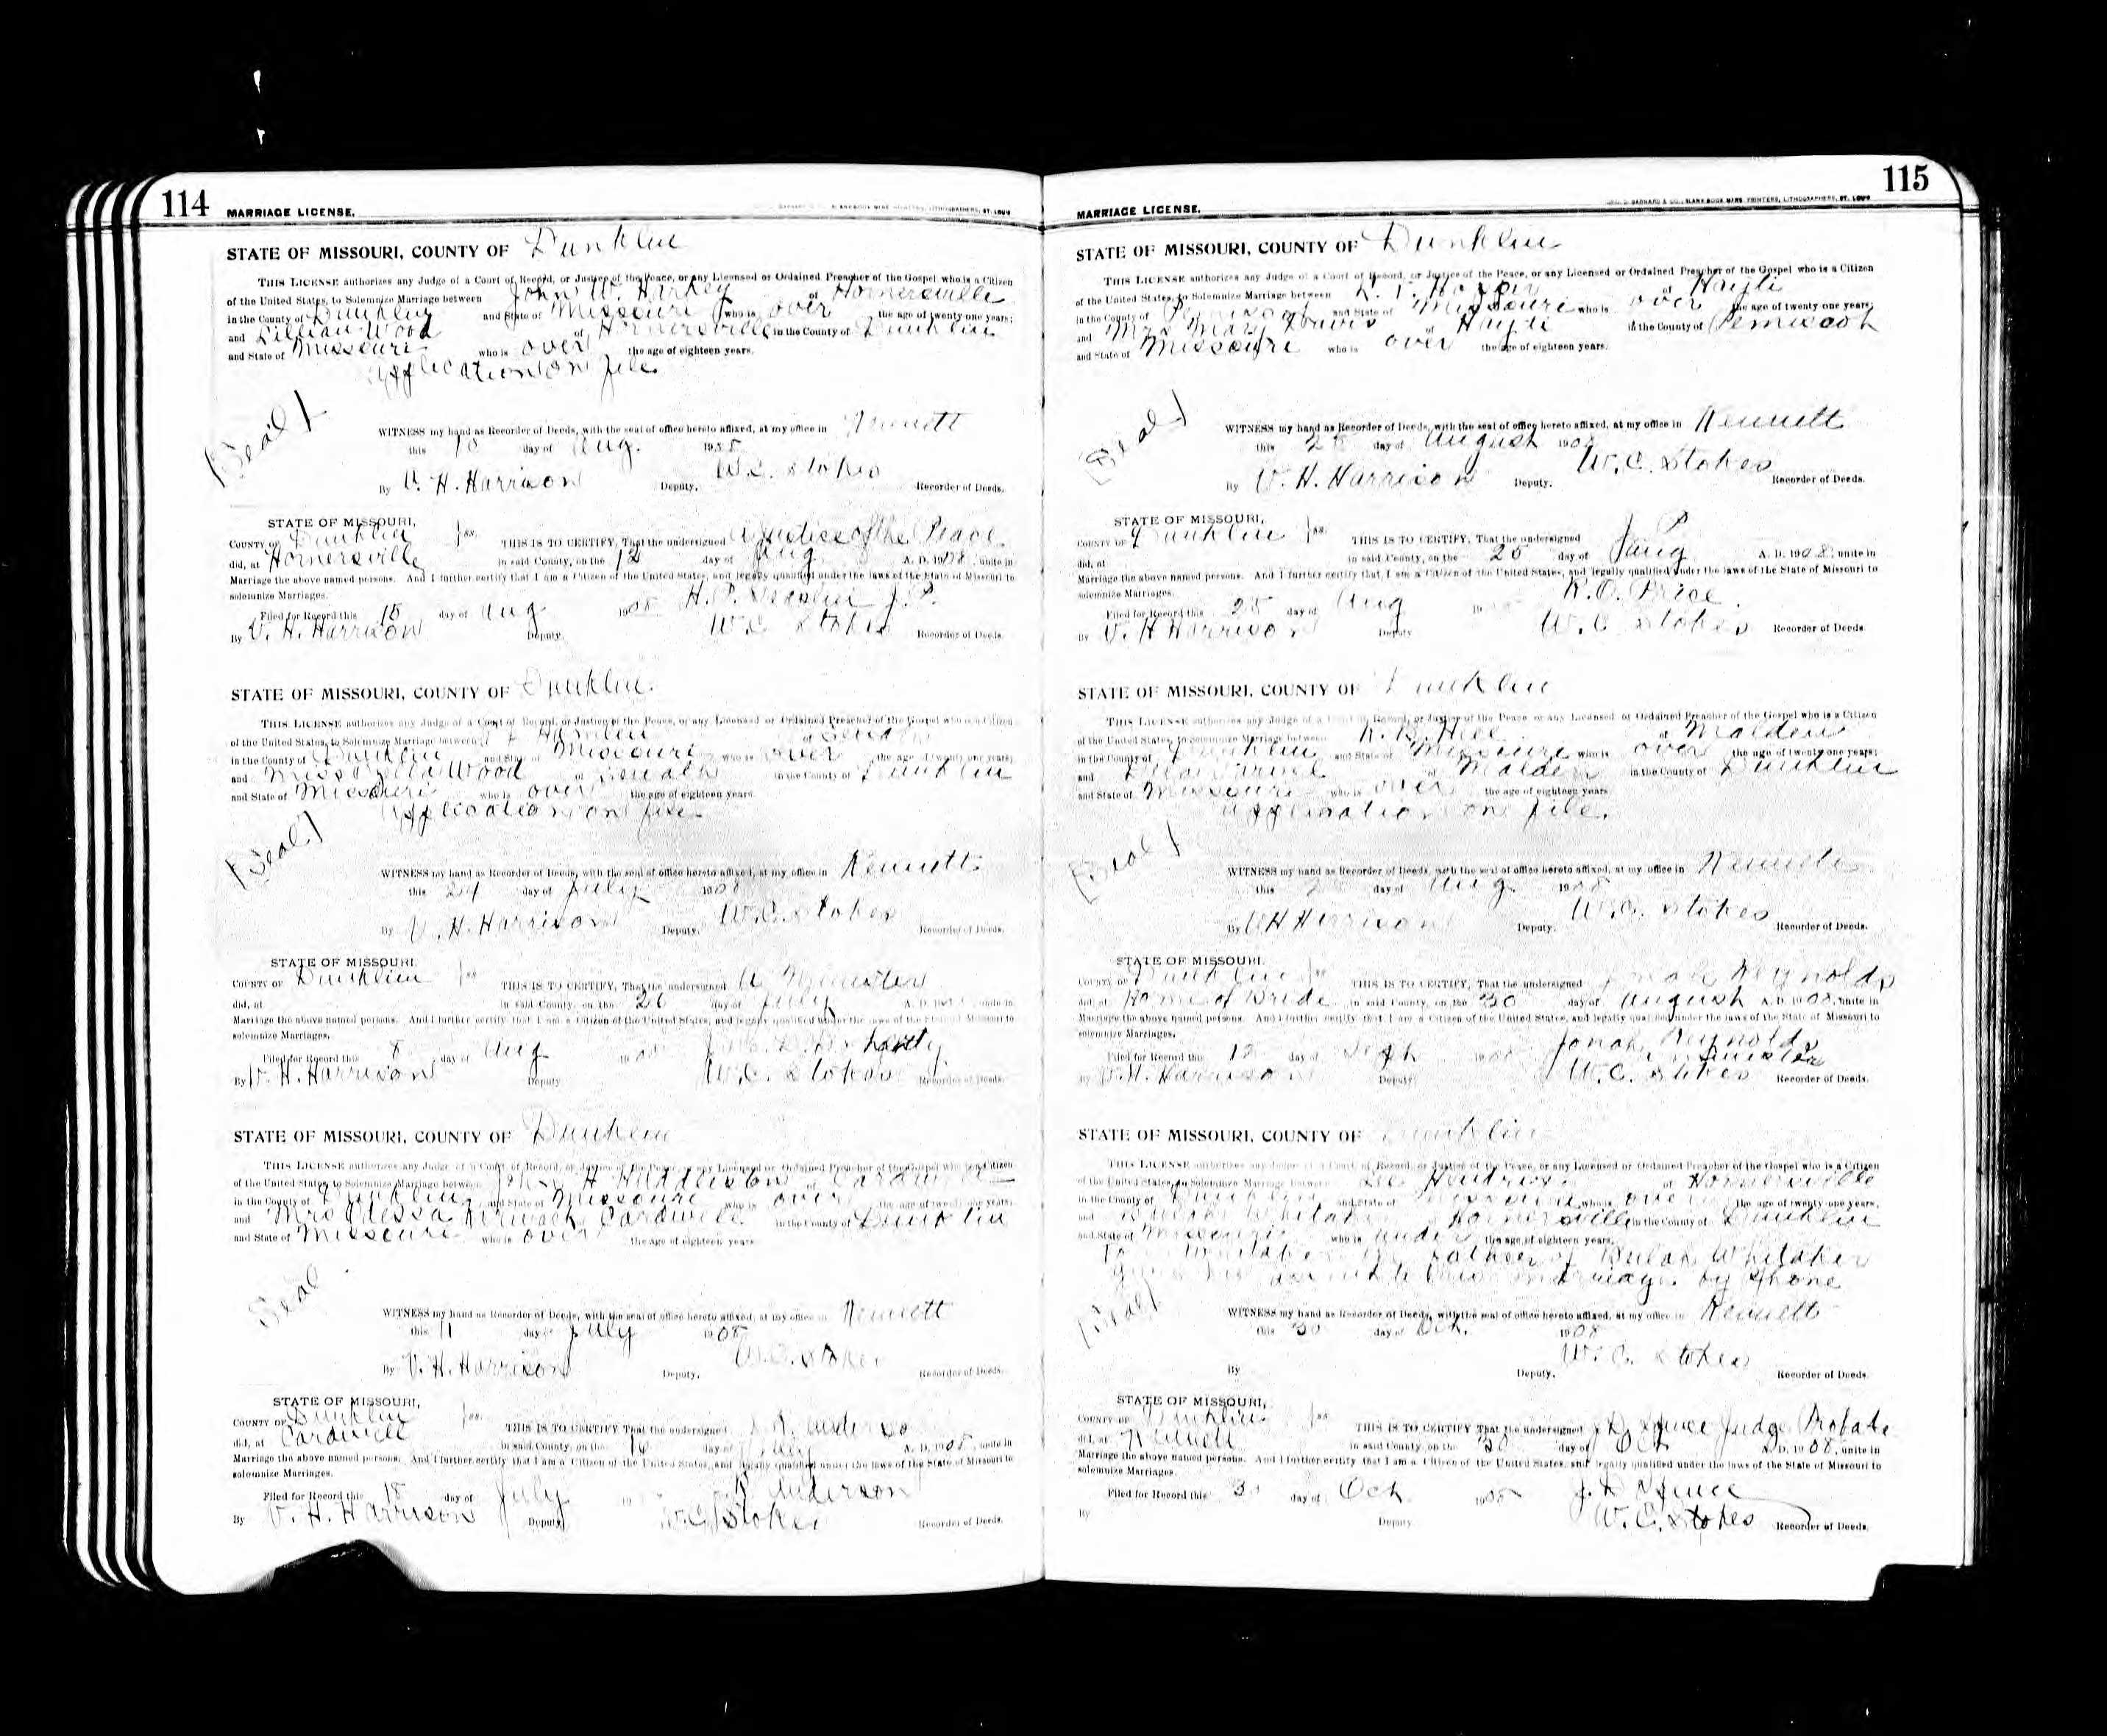 114
MARRIAGE LICENSE.
STATE OF MISSOURI, COUNTY OF Dunklin
THIS LICENSE authorizes any Judge of a Court of Record, or Justice of the Peace, or any Licensed or Ordained Preacher of the Gospel who is a Citizen
of the United States, to Solemnize Marriage between John W. Harkey of Hornersville
in the County of Dunklin and State of Missouri who is over the age of twenty-one years;
and Lillian Wood of Hornersville in the County of Dunklin
and State of Missouri who is over the age of eighteen years.
Application on file
(Seal)
WITNESS my hand as Recorder of Deeds, with the seal of office hereto affixed, at my office in Kennett
this 10 day of Aug.
By V. H. Harrison Deputy. W.C. Stokes Recorder of Deeds.
STATE OF MISSOURI,
COUNTY OF Dunklin ss. THIS IS TO CERTIFY, That the undersigned a Justice of the Peace
did, at Hornersville in said County, on the day of Aug A. D. 1908, unite in
Marriage the above named persons. And I further certify that I am a Citizen of the United States, and legally qualified under the laws of the State of Missouri to
solemnize Marriages. H. P. J. P.
Filed for Record this 15 day of Aug 1908
By V. H. Harrison Deputy. W.C. Stokes Recorder of Deeds.
STATE OF MISSOURI, COUNTY OF Dunklin
THIS LICENSE authorizes any Judge of a Court of Record, or Justice of the Peace, or any Licensed or Ordained Preacher of the Gospel who is a Citizen
of the United States, to Solemnize Marriage between of Senath
in the County of Dunklin and State of Missouri who is over the age of twenty-one years;
and Miss Wood of Senath in the County of Dunklin
and State of Missouri who is over the age of eighteen years.
Application on file.
(Seal)
WITNESS my hand as Recorder of Deeds, with the seal of office hereto affixed, at my office in Kennett
this 24 day of July 1908
By V. H. Harrison Deputy. W.C. Stokes Recorder of Deeds.
STATE OF MISSOURI,
COUNTY OF Dunklin ss. THIS IS TO CERTIFY, That the undersigned a Minister
did, at in said County, on the 26 day of July A. D. unite in
Marriage the above named persons. And I further certify that I am a Citizen of the United States, and legally qualified under the laws of the State of Missouri to
solemnize Marriages.
Filed for Record this 8 day of Aug 1908
By V. H. Harrison Deputy W.C. Stokes Recorder of Deeds.
STATE OF MISSOURI, COUNTY OF Dunklin
THIS LICENSE authorizes any Judge of a Court of Record, or Justice of the Peace, or any Licensed or Ordained Preacher of the Gospel who is a Citizen
of the United States, to Solemnize Marriage between John H Huddleston of Cardwell
in the County of Dunklin and State of Missouri who is over the age of twenty-one years;
and Mrs Odessa Cardwell in the County of Dunklin
and State of Missouri who is over the age of eighteen years
Seal
WITNESS my hand as Recorder of Deeds, with the seal of office hereto affixed, at my office in Kennett
this 11 day of July 1908
By V. H. Harrison Deputy. W.C. Stokes Recorder of Deeds.
STATE OF MISSOURI,
COUNTY OF Dunklin ss. THIS IS TO CERTIFY That the undersigned
did, at Cardwell in said County, on the day of July A. D. 1908, unite in
Marriage the above named persons. And I further certify that I am a Citizen of the United States, and legally qualified under the laws of the State of Missouri to
solemnize Marriages. Anderson
Filed for Record this 18 day of July 19
By V. H. Harrison Deputy W.C. Stokes Recorder of Deeds.
115
MARRIAGE LICENSE.
STATE OF MISSOURI, COUNTY OF Dunklin
THIS LICENSE authorizes any Judge of a Court of Record, or Justice of the Peace, or any Licensed or Ordained Preacher of the Gospel who is a Citizen
of the United States, to Solemnize Marriage between of Hayti
in the County of Pemiscot and State of Missouri who is over the age of twenty-one years;
and Mrs Mary Davis of Hayti in the County of Pemiscot
and State of Missouri who is over the age of eighteen years.
(Seal)
WITNESS my hand as Recorder of Deeds, with the seal of office hereto affixed, at my office in Kennett
this 25 day of August 1908
By V. H. Harrison Deputy. W.C. Stokes Recorder of Deeds.
STATE OF MISSOURI,
COUNTY OF Dunklin ss. THIS IS TO CERTIFY, That the undersigned J P
did, at in said County, on the 25 day of Aug A. D. 1908, unite in
Marriage the above named persons. And I further certify, that I am a Citizen of the United States, and legally qualified under the laws of the State of Missouri to
solemnize Marriages. R.O. Price.
Filed for Record this 25 day of Aug 19
By V. H Harrison Deputy W.C Stokes Recorder of Deeds.
STATE OF MISSOURI, COUNTY OF Dunklin
THIS LICENSE authorizes any Judge of a Court of Record, or Justice of the Peace or any Licensed or Ordained Preacher of the Gospel who is a Citizen
of the United States, to Solemnize Marriage between of Malden
in the County of Dunklin and State of Missouri who is over the age of twenty-one years;
and of Malden in the County of Dunklin
and State of Missouri who is over the age of eighteen years
Application on file.
(Seal)
WITNESS my hand as Recorder of Deeds, with the seal of office hereto affixed, at my office in Kennett
this day of Aug 1908
By V H Harrison Deputy. W.C. Stokes Recorder of Deeds.
STATE OF MISSOURI,
COUNTY OF Dunklin ss THIS IS TO CERTIFY, That the undersigned Jonah Reynolds
did, at Home of Bride in said County, on the 30 day of August A. D. 1908, unite in
Marriage the above named persons. And I further certify that I am a Citizen of the United States, and legally qualified under the laws of the State of Missouri to
solemnize Marriages. Jonah Reynolds
Filed for Record this 12 day of Sept 1908 Minister
By V.H. Harrison Deputy W.C. Stokes Recorder of Deeds.
STATE OF MISSOURI, COUNTY OF Dunklin
THIS LICENSE authorizes any Judge of a Court of Record, or Justice of the Peace, or any Licensed or Ordained Preacher of the Gospel who is a Citizen
of the United States, to Solemnize Marriage between of Hornersville
in the County of Dunklin and State of Missouri who is over the age of twenty-one years,
and Beulah Whitaker Hornersville in the County of Dunklin
and State of Missouri who is under the age of eighteen years,
Whitaker the father of Beulah Whitaker
marriage by phone
(Seal)
WITNESS my hand as Recorder of Deeds, with the seal of office hereto affixed, at my office in Kennett
this 30 day of Oct. 1908
By Deputy. W.C. Stokes Recorder of Deeds.
STATE OF MISSOURI,
COUNTY OF Dunklin ss THIS IS TO CERTIFY That the undersigned J.D. Spence Judge Probate
did, at Kennett in said County, on the 30 day of Oct A. D. 1908, unite in
Marriage the above named persons. And I further certify that I am a Citizen of the United States, and legally qualified under the laws of the State of Missouri to
solemnize Marriages.
Filed for Record this 30 day of Oct 1908 J. D Spence
By Deputy W.C. Stokes Recorder of Deeds.